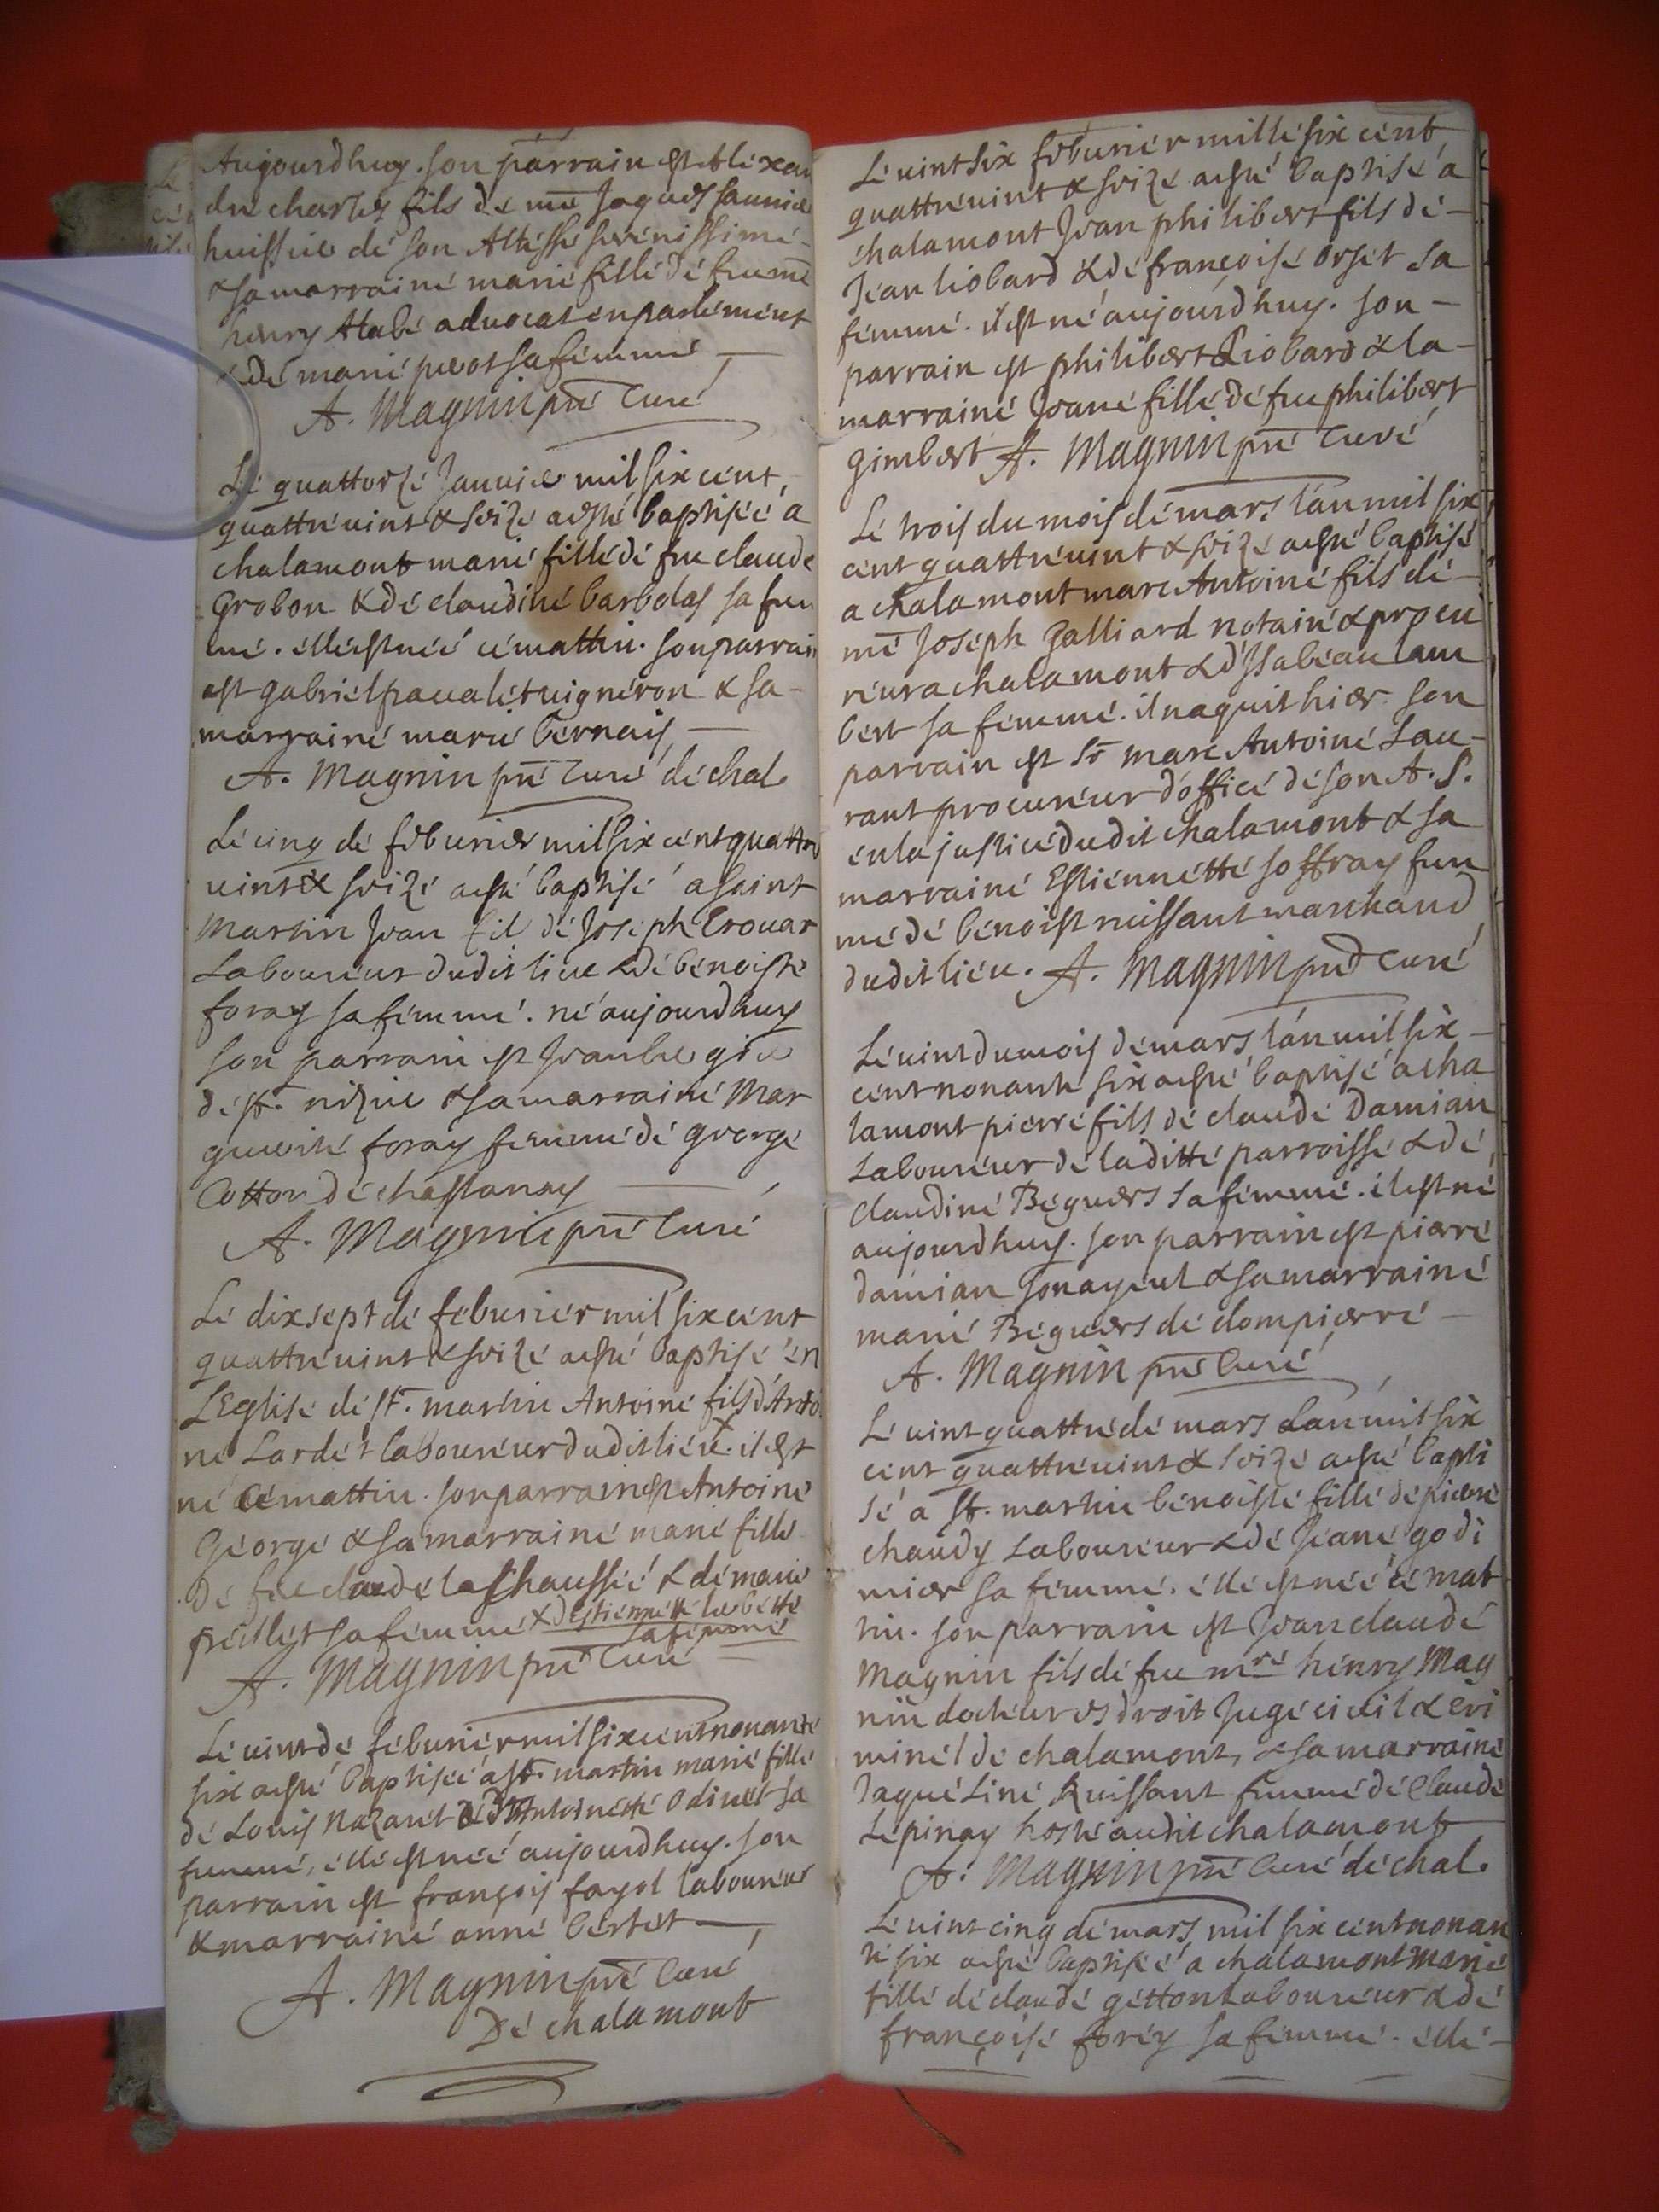 Aujourdhuy. son parrain est Alexan
dre charles fils de mẽ Jaques saunier
huissier de son Altesse serenissime
& sa marraine marie fille de feu mẽ
henry Atabé advocat en parlement
& de marie pivot sa femme
A. Magnin prẽ Curé
Le quattorze Janvier mil six cent
quattrevint & seize a esté baptisée a
chalamont marie fille de feu claude
Grobon & de claudine barbolas sa fem
me. elle est neé ce mattin. son parrain
est gabriel pavalet vigneron & sa
marraine marie bernais
A. Magnin prẽ Curé de chal.
Le cinq de feburier mil six cent quattre
vint & seize a esté baptisé a saint
Martin Jean fil de Joseph Crouar
Laboureur dudit lieu & de benoiste
foray sa femme. né aujourdhuy
son parrain est
de St. nizier & sa marraine Mar
guerite foray femme de george
Cotton de chastanay
A. Magnin prẽ Curé
Le dixsept de feburier mil six cent
quattrevint & seize a esté baptisé en
L'Eglise de St. martin Antoine fils d'Antoi
ne Lardet laboureur dudit lieu x. il est
né ce mattin. son parrain est Antoine
George & sa marraine marie fille
de feu claude la Chaussée & de marie
preillet sa femme x d'Estiennette
sa femme
A. Magnin prẽ Curé
Le vint de feburier mil six cent nonante
six a esté baptisée a St. martin marie fille
de Louis Nazaret & d'Antoinette Odinet sa
femme, elle est neé aujourdhuy. son
parrain est françois fayol laboureur
& marraine anne bertet
A. Magnin prẽ Curé
De chalamont
Le vint six feburier mille six cent
quattrevint & seize a esté baptisé a
chalamont Jean philibert fils de
Jean liobard & de françoise orset sa
femme. il est né aujourdhuy. son
parrain est philibert Liobard & la
marraine Jeane fille de feu philibert
gimbert A. Magnin prẽ Curé
Le trois du mois de mars l'an mil six
cent quattrevint & seize a esté baptisé
a chalamont marc Antoine fils de
mẽ Joseph Galliard notaire & procu
reur a chalamont & d'Isabeau lam
bert sa femme. il naquit hier. son
parrain est Sr marc Antoine Lau
rant procureur d'office de son A. S.
en la justice dudit chalamont & sa
marraine Estiennette soffray fem
me de benoist ruissant marchand
dudit lieu. A. Magnin prẽ Curé
Le vint du mois de mars l'an mil six
cent nonante six a esté baptisé a cha
lamont pierre fils de claude Damian
Laboureur de laditte parroisse & de
claudine Beguers sa femme. il est né
aujourdhuy. son parrain est pierre
damian son ayeul & sa marraine
marie Beguers de dompierre
A. Magnin prẽ Curé
Le vint quattre de mars L'an mil six
cent quattrevint & seize a esté bapti
sé a St. martin benoiste fille de pierre
chaudy Laboureur & de Jeane godi
mier sa femme. elle est neé ce mat
tin. son parrain est Jean claude
Magnin fils de feu mre henry Mag
nin docteur es droit Juge civil & cri
minel de chalamont, & sa marraine
Jaqueline Ruissant femme de Claude
Lepinay hoste audit chalamont
A. Magnin prẽ Curé de chal.
Le vint cinq de mars mil six cent nonan
te six a esté baptisée a chalamont Marie
fille de claude getton Laboureur & de
françoise forey sa femme. elle